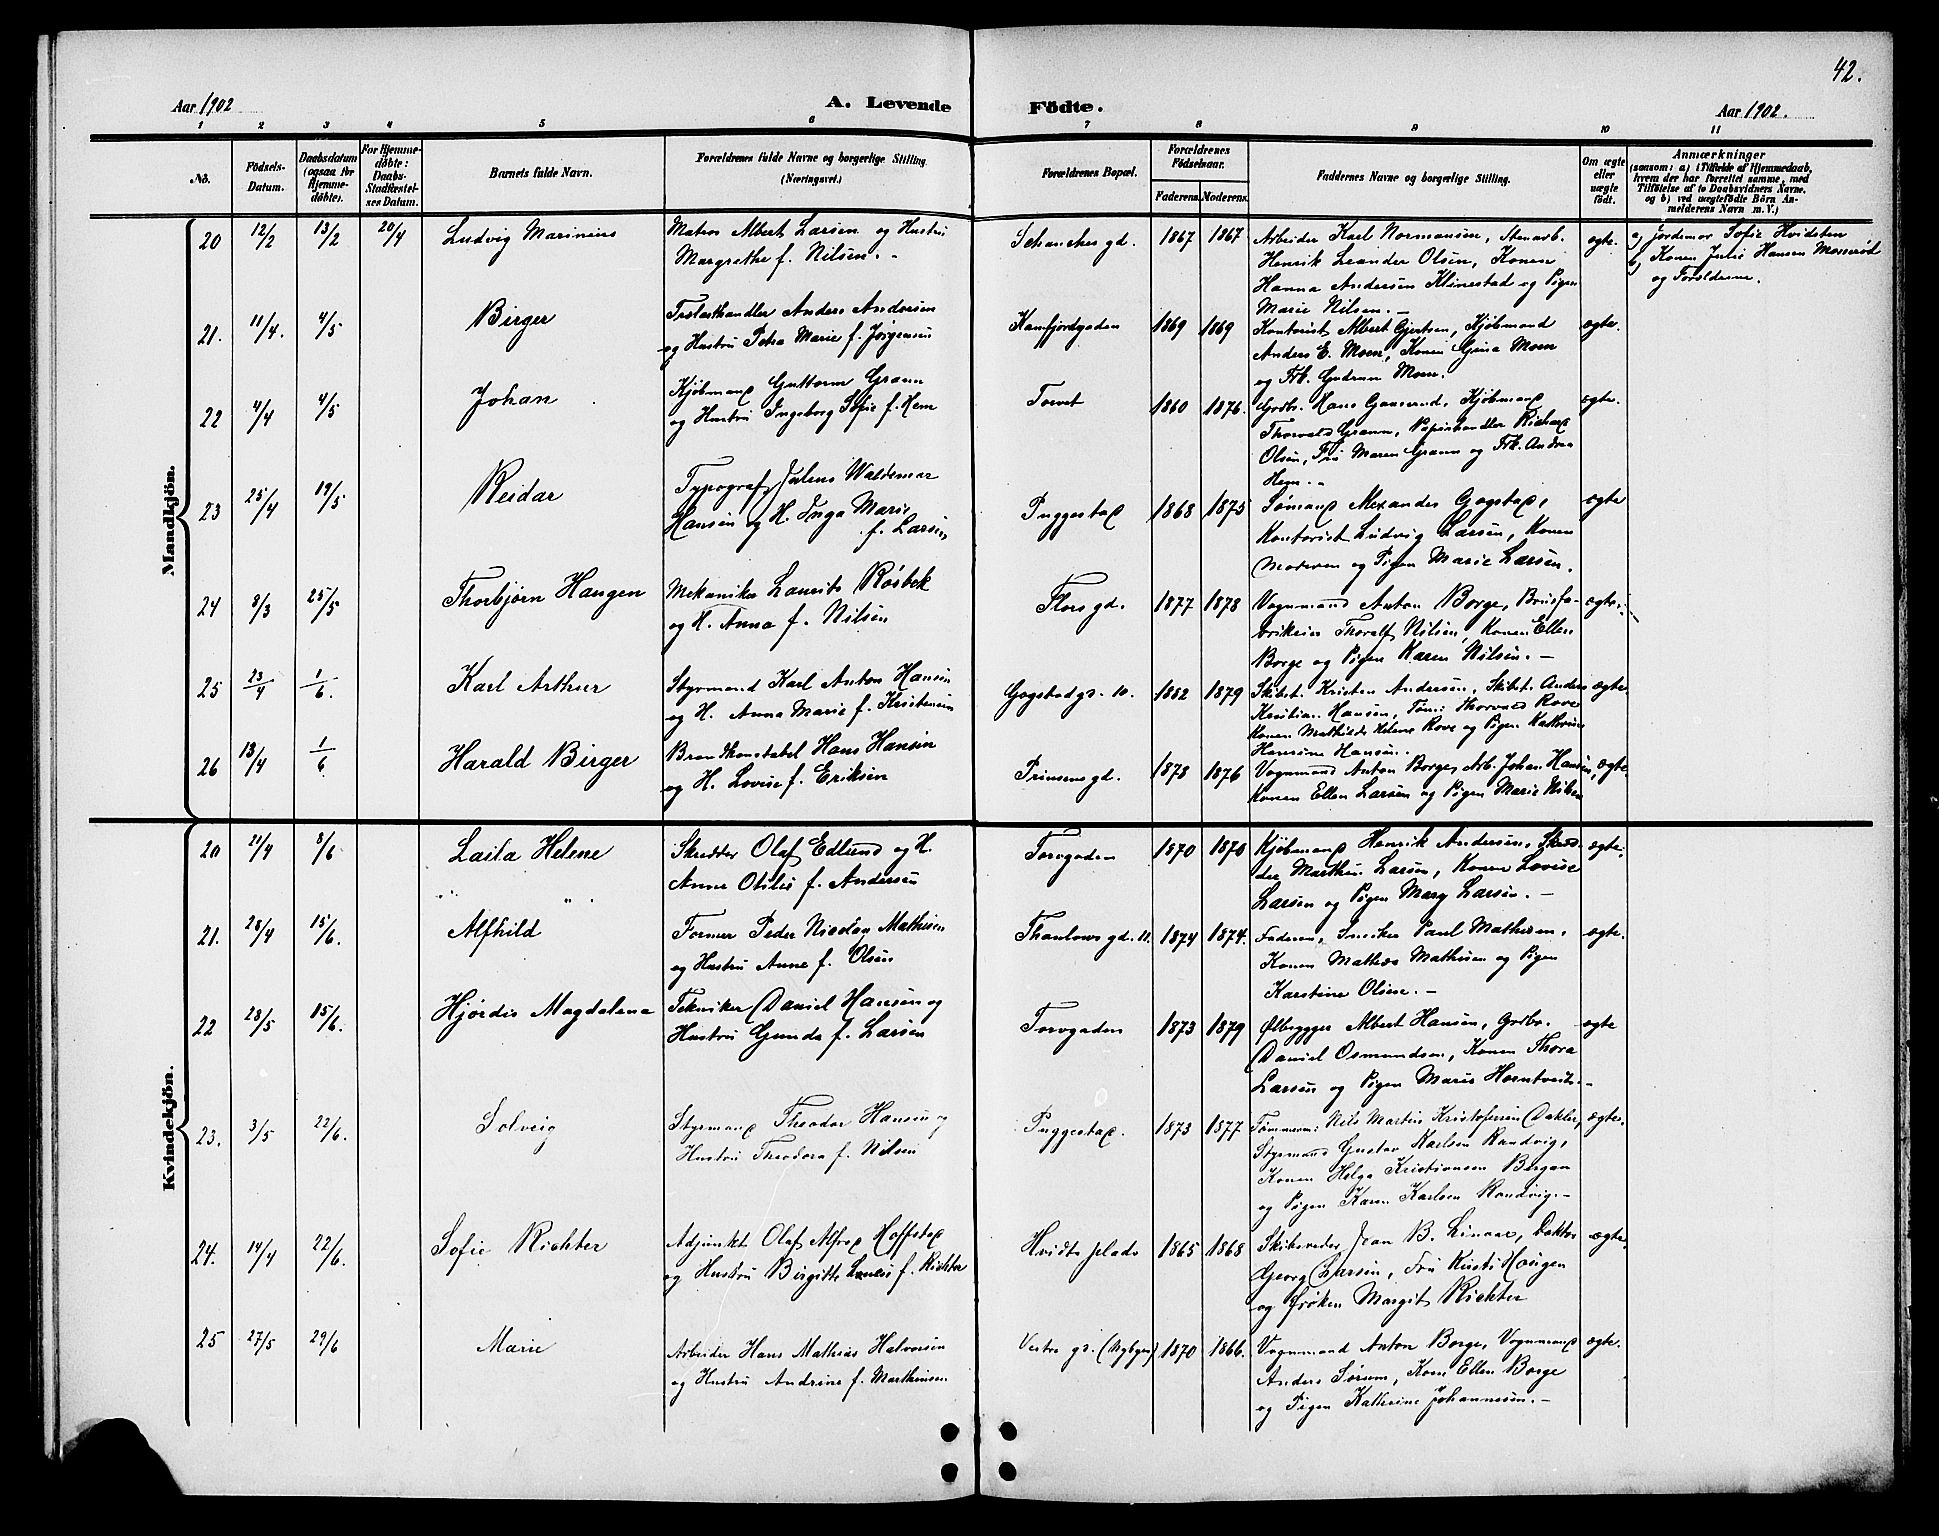 42.
Aar 1902
A. Levende
Födte.
Aar 1902.
1 2 3 4 5 6 7 8 9 10 11
No.
Födsels-Datum.
Daabsdatum (ogsaa for Hjemmedöbte).
For Hjemmedöbte: Daabs-Stadfæstelses Datum.
Barnets fulde Navn.
Forældrenes fulde Navne og borgerlige Stilling.
(Næringsvei.)
Forældrenes Bopæl.
Forældrenes Födselsaar.
Faderens. Moderens.
Faddernes Navne og borgerlige Stilling.
Om ægte eller uægte födt.
Anmærkninger
(saasom: a) i Tilfælde af Hjemmedaab,
hvem der har forrettet samme, med
Tilföielse af to Daabsvidners Navne.
og b) ved uægtefödte Börn Anmelderens Navn m. V.)
Mandkjön.
20 12/2 13/2 20/4 Ludvig Marinius
Matros Albert Larsen og Hustru
Margrethe f. Nilsen. -
Schanches gd. 1867 1867
Arbeider Karl Normansen, Stenarb.
Henrik Leander Olsen, Konen
Hanna Andersen Klinestad og Pigen
Marie Nilsen. -
ægte.
a) Jordemor Sofie Hvidsten
b) Konen Julie Hansen Mosserød
og Forældrene.
21. 11/4. 4/5 Birger
Trælasthandler Anders Andersen
og Hustru Petra Marie f. Jørgensen
Kamfjordgaden 1869 1869
Kontorist Albert Gjertsen, Kjøbmand
Anders E. Moen, Konen Gina Moen
og Frk. Gudrun Moen.
ægte.
22 4/4 4/5 Johan
Kjøbmand Guttorm Grann
og Hustru Ingeborg Sofie f. Hem
Torvet 1860 1876.
Grdbr. Hans Gaaserud, Kjøbmand
Thorvald Grann, Papirhandler Richard
Olsen, Fru Maren Grann og Frk. Andrea
Hem. -
ægte.
23 25/4 19/5 Reidar
Typograf Julius Waldemar
Hansen og H. Inga Marie
f. Larsen
Puggestad 1868 1875
Sømand Alexander Gogstad,
Kontorist Ludvig Larsen, Konen
Moderen og Pigen Marie Larsen.
ægte
24 8/3 25/5 Thorbjørn Haugen
Mekaniker Laurits Røsbek
og H. Anna f. Nilsen
Flors gd. 1877 1878
Vognmand Anton Borge, Brusfabrikeier Thoralf Nilsen, Konen Ellen
Borge og Pigen Karen Nilsen. -
ægte.
25 23/4 1/6 Karl Arthur
Styrmand Karl Anton Hansen
og H. Anna Marie f. Kristensen
Gogstad gd. 10. 1882 1879
Skibst. Kristen Andersen, Skibst. Anders
Kristian Hansen, Tømr. Thorvald Rove
Konen Mathilde Helene Rove og Pigen Kathrine
Hansine Hansen.
ægte.
26 13/4 1/6 Harald Birger
Brandkonstabel Hans Hansen
og H. Lovise f. Eriksen
Prinsens gd. 1878 1876
Vognmand Anton Borge, Arb. Johan Hansen,
Konen Ellen Larsen og Pigen Marie Nilsen
ægte.
Kvindekjön.
20 21/4 8/6 Laila Helene
Skrædder Olaf Edlund og H.
Anne Otilie f. Andersen
Torvgaden 1870 1870
Kjøbmand Henrik Andersen, Skrædder Marthin Larsen, Konen Lovise
Larsen og Pigen Mary Larsen. -
ægte.
21. 28/4 15/6. Alfhild
Former Peder Nicolay Mathisen
og Hustru Anne f. Olsen
Thaulows gd. 11. 1874 1874.
Faderen, Snekker Paul Mathisen,
Konen Mathea Mathisen og Pigen
Karstine Olsen. -
ægte.
22 28/5 15/6. Hjørdis Magdalena
Tekniker Daniel Hansen og
Hustru Gunda f. Larsen
Torvgaden 1873 1879
Ølbrygger Albert Hansen, Grdbr.
Daniel Osmundsen, Konen Thora
Larsen og Pigen Marie Horntvedt. -
ægte
23. 3/5 22/6. Solveig
Styrmand Theodor Hansen og
Hustru Theodora f. Nilsen
Puggestad. 1873 1877
Tømmerm. Nils Martin Kristofersen Dakler,
Styrmand Gustav Karlsen Randvig,
Konen Helga Kristiansen Bergan
og Pigen Karen Karlsen Randvig. -
ægte.
24. 14/4 22/6. Sofie Richter
Adjunkt Olaf Alfred Hoffstad
og Hustru Birgitte f. Richter
Hvidts plads 1865 1868
Skibsreder Joan B. Linaae, Doktor
Georg Larsen, Fru Kusti Haugen
og Frøken Margit Richter
ægte.
25 27/5 29/6 Marie
Arbeider Hans Mathias Halvorsen
og Hustru Andrine f. Marthinsen
Vestre gd. (Nybyen) 1870 1866.
Vognmand Anton Borge, Vognmand
Anders Sørum, Kone Ellen Borge
og Pigen Kathrine Johannesen. -
ægte.